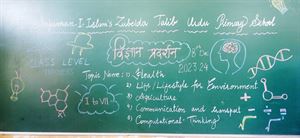 Anjuman-I-Islam's Zubeida Talib Urdu Primary School
CLASS LEVEL
विज्ञान प्रदर्शन
2023-24
I to VII
Topic Name :- 1) Health
2) Life / Lifestyle for Environment
3) Agriculture
4) Communication and Transport
5) Computational-Thinking